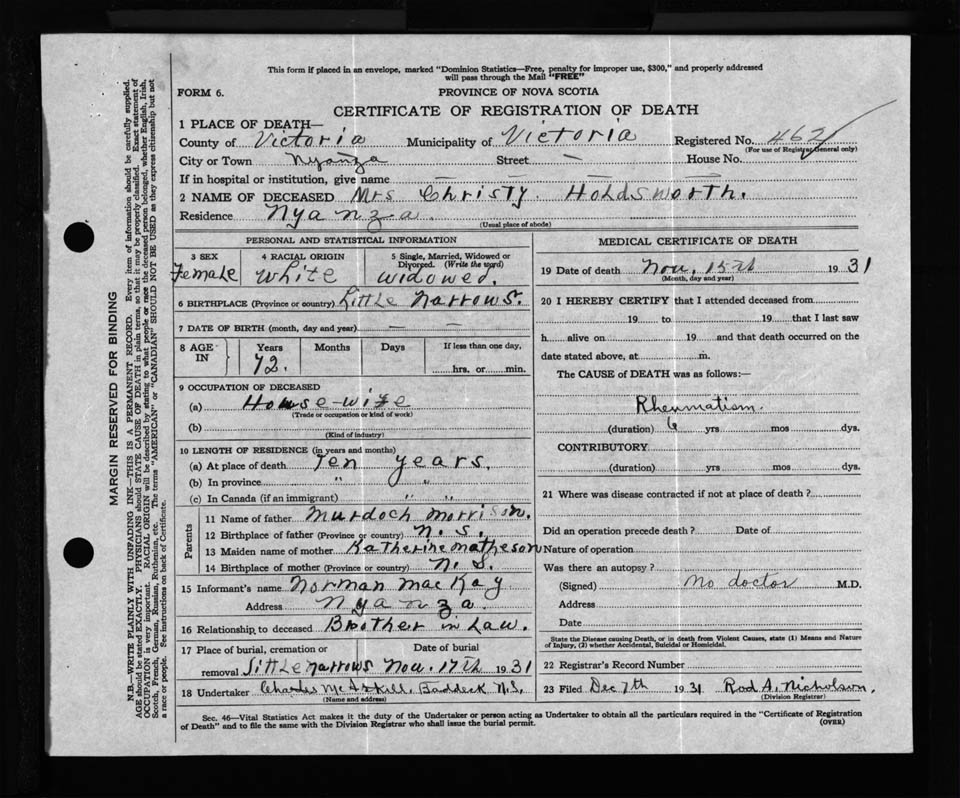 This form if placed in an envelope, marked "Dominion Statistics—Free, penalty for improper use, $300," and properly addressed
will pass through the Mail "FREE"
FORM 6.
PROVINCE OF NOVA SCOTIA
CERTIFICATE OF REGISTRATION OF DEATH
1 PLACE OF DEATH—
County of Victoria Municipality of Victoria Registered No. 462
(For use of Registrar General only)
City or Town Nyanza Street — House No.
If in hospital or institution, give name — — — —
2 NAME OF DECEASED Mrs Christy. Holdsworth.
Residence Nyanza.
(Usual place of abode)
PERSONAL AND STATISTICAL INFORMATION
3 SEX 4 RACIAL ORIGIN 5 Single, Married, Widowed or Divorced. (Write the word)
Female White widowed.
6 BIRTHPLACE (Province or country) Little Narrows.
7 DATE OF BIRTH (month, day and year) — —
8 AGE IN Years Months Days If less than one day,
72. hrs. or min.
9 OCCUPATION OF DECEASED
(a) House-wife
(Trade or occupation or kind of work)
(b)
(Kind of industry)
10 LENGTH OF RESIDENCE (in years and months)
(a) At place of death Ten years.
(b) In province " "
(c) In Canada (if an immigrant) " "
Parents
11 Name of father Murdoch Morrison.
12 Birthplace of father (Province or country) N. S.
13 Maiden name of mother Katherine Matheson
14 Birthplace of mother (Province or country) N. S.
15 Informant's name Norman MacKay
Address Nyanza.
16 Relationship to deceased Brother in Law.
17 Place of burial, cremation or removal Date of burial
Little narrows Nov. 17th 1931
18 Undertaker Charles McAskill, Baddeck N.S.
(Name and address)
MEDICAL CERTIFICATE OF DEATH
19 Date of death Nov. 15th 1931
(Month, day and year)
20 I HEREBY CERTIFY that I attended deceased from
19 to 19 that I last saw
h alive on 19 and that death occurred on the
date stated above, at m.
The CAUSE of DEATH was as follows:—
Rheumatism.
(duration) 6 yrs mos dys.
CONTRIBUTORY
(duration) yrs mos dys.
21 Where was disease contracted if not at place of death?
Did an operation precede death? Date of
Nature of operation
Was there an autopsy?
(Signed) No doctor M.D.
Address
Date
State the Disease causing Death, or in death from Violent Causes, state (1) Means and Nature
of Injury, (2) whether Accidental, Suicidal or Homicidal.
22 Registrar's Record Number
23 Filed Dec 7th 1931 Rod A. Nicholson.
(Division Registrar)
Sec. 46—Vital Statistics Act makes it the duty of the Undertaker or person acting as Undertaker to obtain all the particulars required in the "Certificate of Registration
of Death" and to file the same with the Division Registrar who shall issue the burial permit.
(OVER)
MARGIN RESERVED FOR BINDING
N.B.—WRITE PLAINLY WITH UNFADING INK—THIS IS A PERMANENT RECORD. Every item of information should be carefully supplied.
AGE should be stated EXACTLY. PHYSICIANS should STATE CAUSE OF DEATH in plain terms, so that it may be properly classified. Exact statement of
OCCUPATION is very important. RACIAL ORIGIN will be described by stating to what people or race the deceased person belonged, whether English, Irish,
Scotch, French, German, Russian, Ruthenian, etc. The terms "AMERICAN" or "CANADIAN" SHOULD NOT BE USED as they express citizenship but not
a race or people. See instructions on back of Certificate.